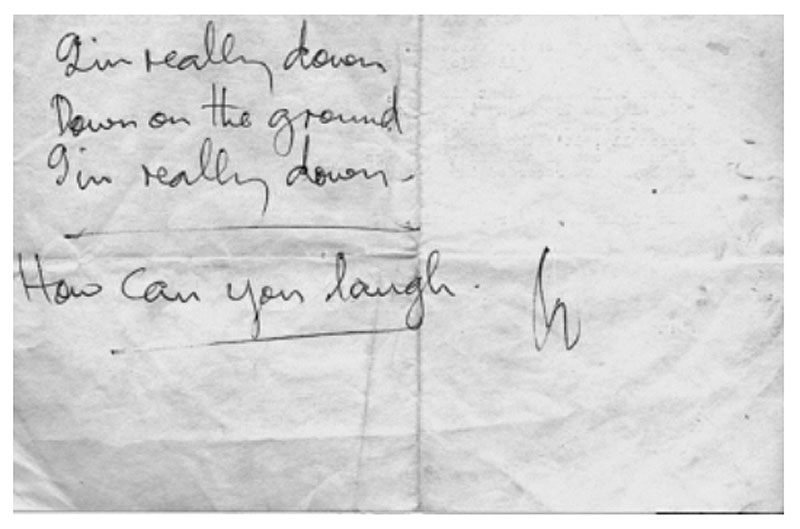 I'm really down
Down on the ground
I'm really down -
How can you laugh.